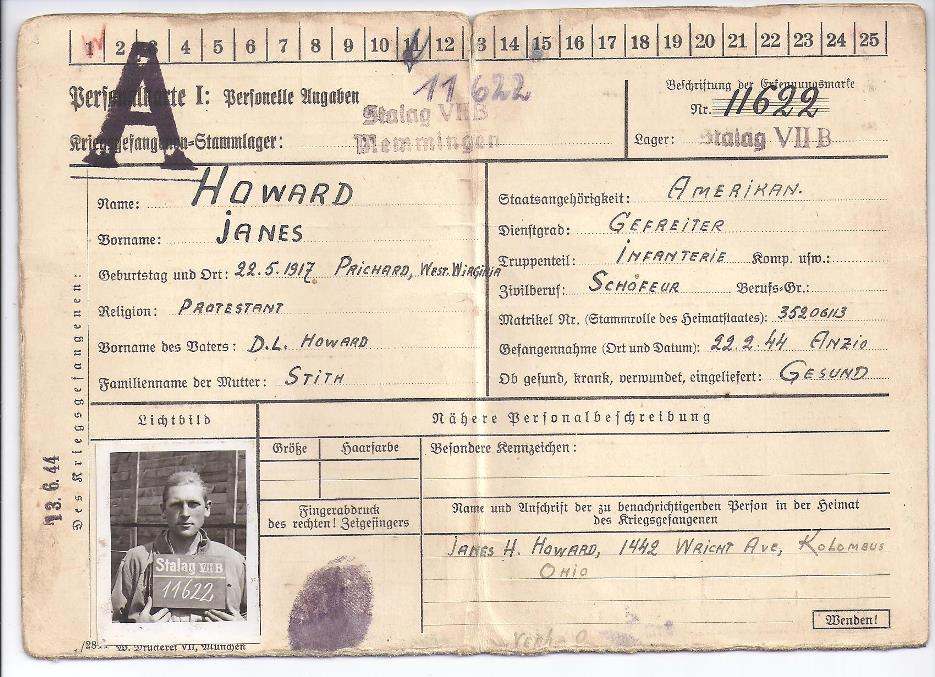 1 2 3 4 5 6 7 8 9 10 11 12 13 14 15 16 17 18 19 20 21 22 23 24 25
A
Personalkarte I: Personelle Angaben
11622
Kriegsgefangenen-Stammlager: Stalag VII B
Memmingen
Beschriftung der Erkennungsmarke
Nr. 11622
Lager: Stalag VII B
Name: HOWARD
Vorname: JANES
Geburtstag und Ort: 22.5.1917 PRICHARD, WEST.WIRGINIA
Religion: PROTESTANT
Vorname des Vaters: D.L. HOWARD
Familienname der Mutter: STITH
Staatsangehörigkeit: AMERIKAN.
Dienstgrad: GEFREITER
Truppenteil: INFANTERIE Komp. usw.:
Zivilberuf: SCHOFEUR Berufs-Gr.:
Matrikel Nr. (Stammrolle des Heimatstaates): 35206113
Gefangennahme (Ort und Datum): 22.2.44 ANZIO
Ob gesund, krank, verwundet, eingeliefert: GESUND
Des Kriegsgefangenen:
13.6.44
Lichtbild
Stalag VII B
11622
Nähere Personalbeschreibung
Größe Haarfarbe
Besondere Kennzeichen:
Fingerabdruck
des rechten! Zeigefingers
Name und Anschrift der zu benachrichtigenden Person in der Heimat
des Kriegsgefangenen
JANES H. HOWARD, 1442 WRICHT AVE, KOLOMBUS
OHIO
Wenden!
Druckerei VII, München